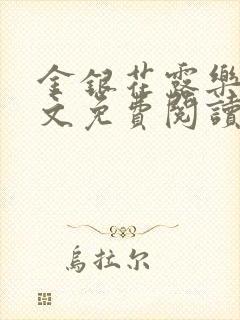 金銀花露樂
文免費閱讀
烏拉尔